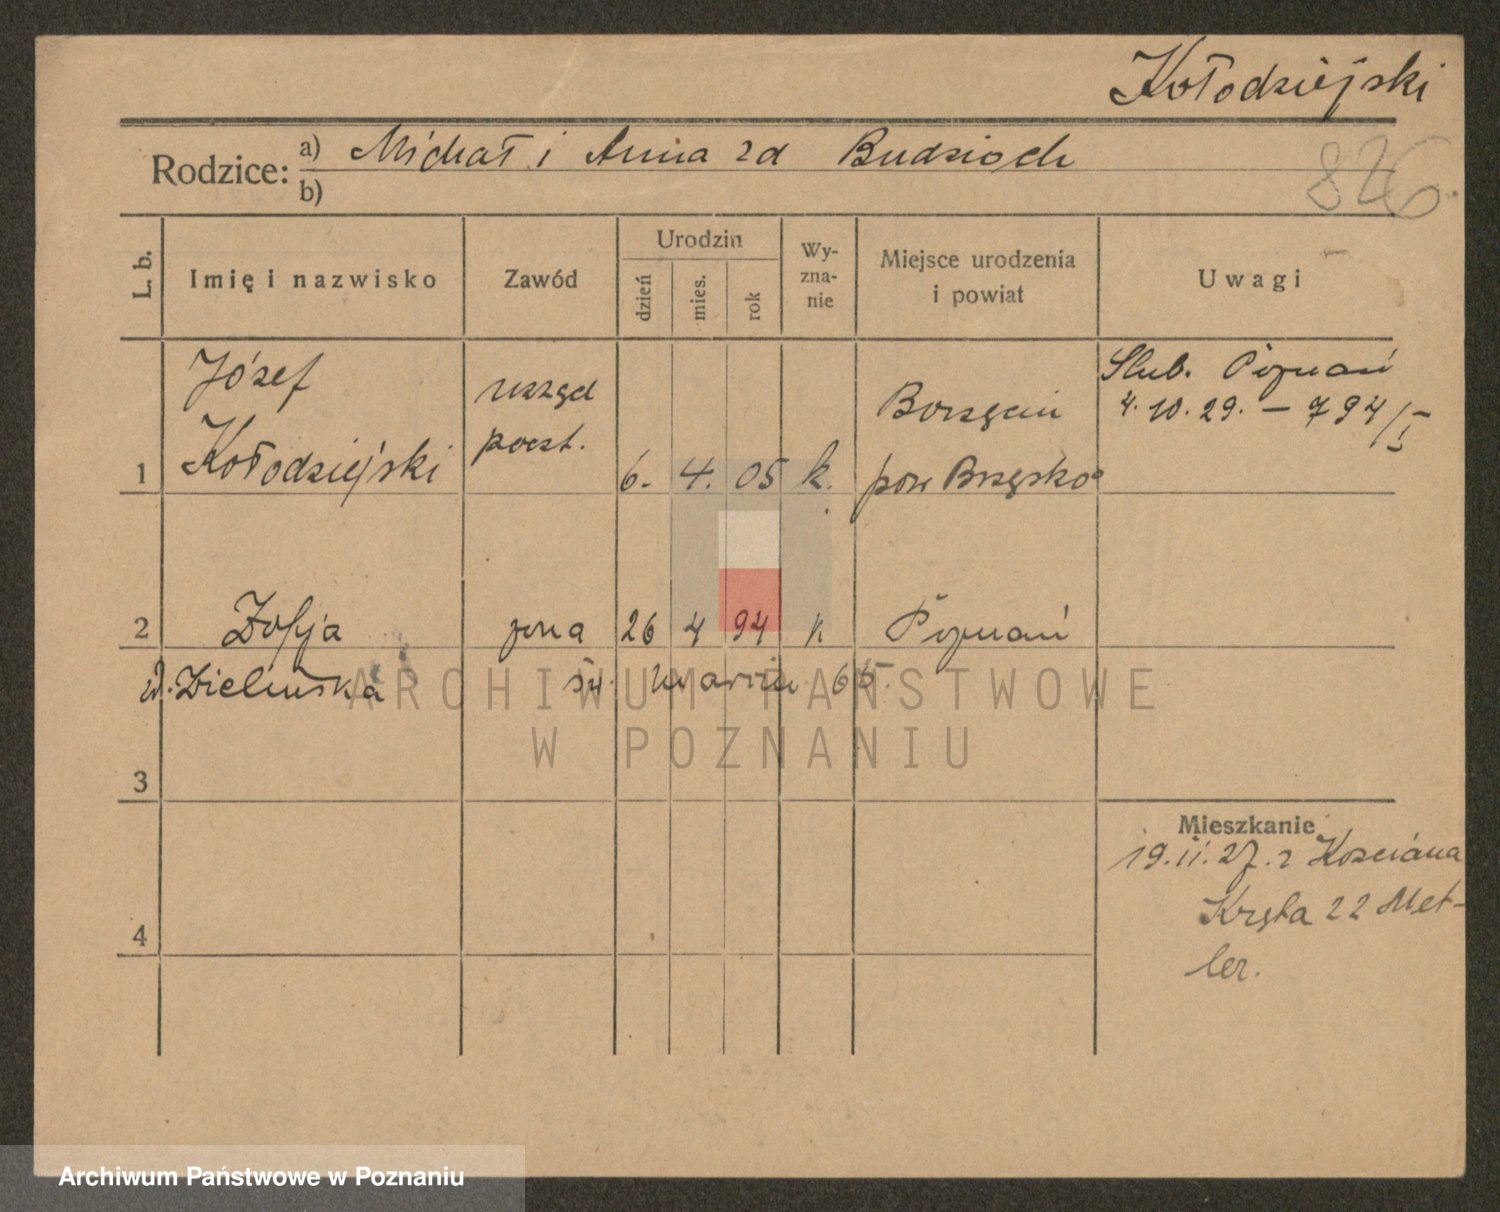 Kołodziejski
Rodzice: a) Michał i Anna zd Budzioch
b)
826.
L. b.
Imię i nazwisko
Zawód
Urodzin
dzień
mies.
rok
Wy-
zna-
nie
Miejsce urodzenia
i powiat
Uwagi
1
Józef
Kołodziejski
urzęd
poczt.
6. 4. 05 k.
Borzęcin
pow Brzesko
Slub. Poznań
4.10.29. – 794/I
2
Zofja
żona
26 4 94 k
Poznań
Zielińska
św. Marcin 65.
3
4
Mieszkanie
19.11.27. z Kościana
Kręta 22 Met-
ler.
ARCHIWUM PAŃSTWOWE
W POZNANIU
Archiwum Państwowe w Poznaniu